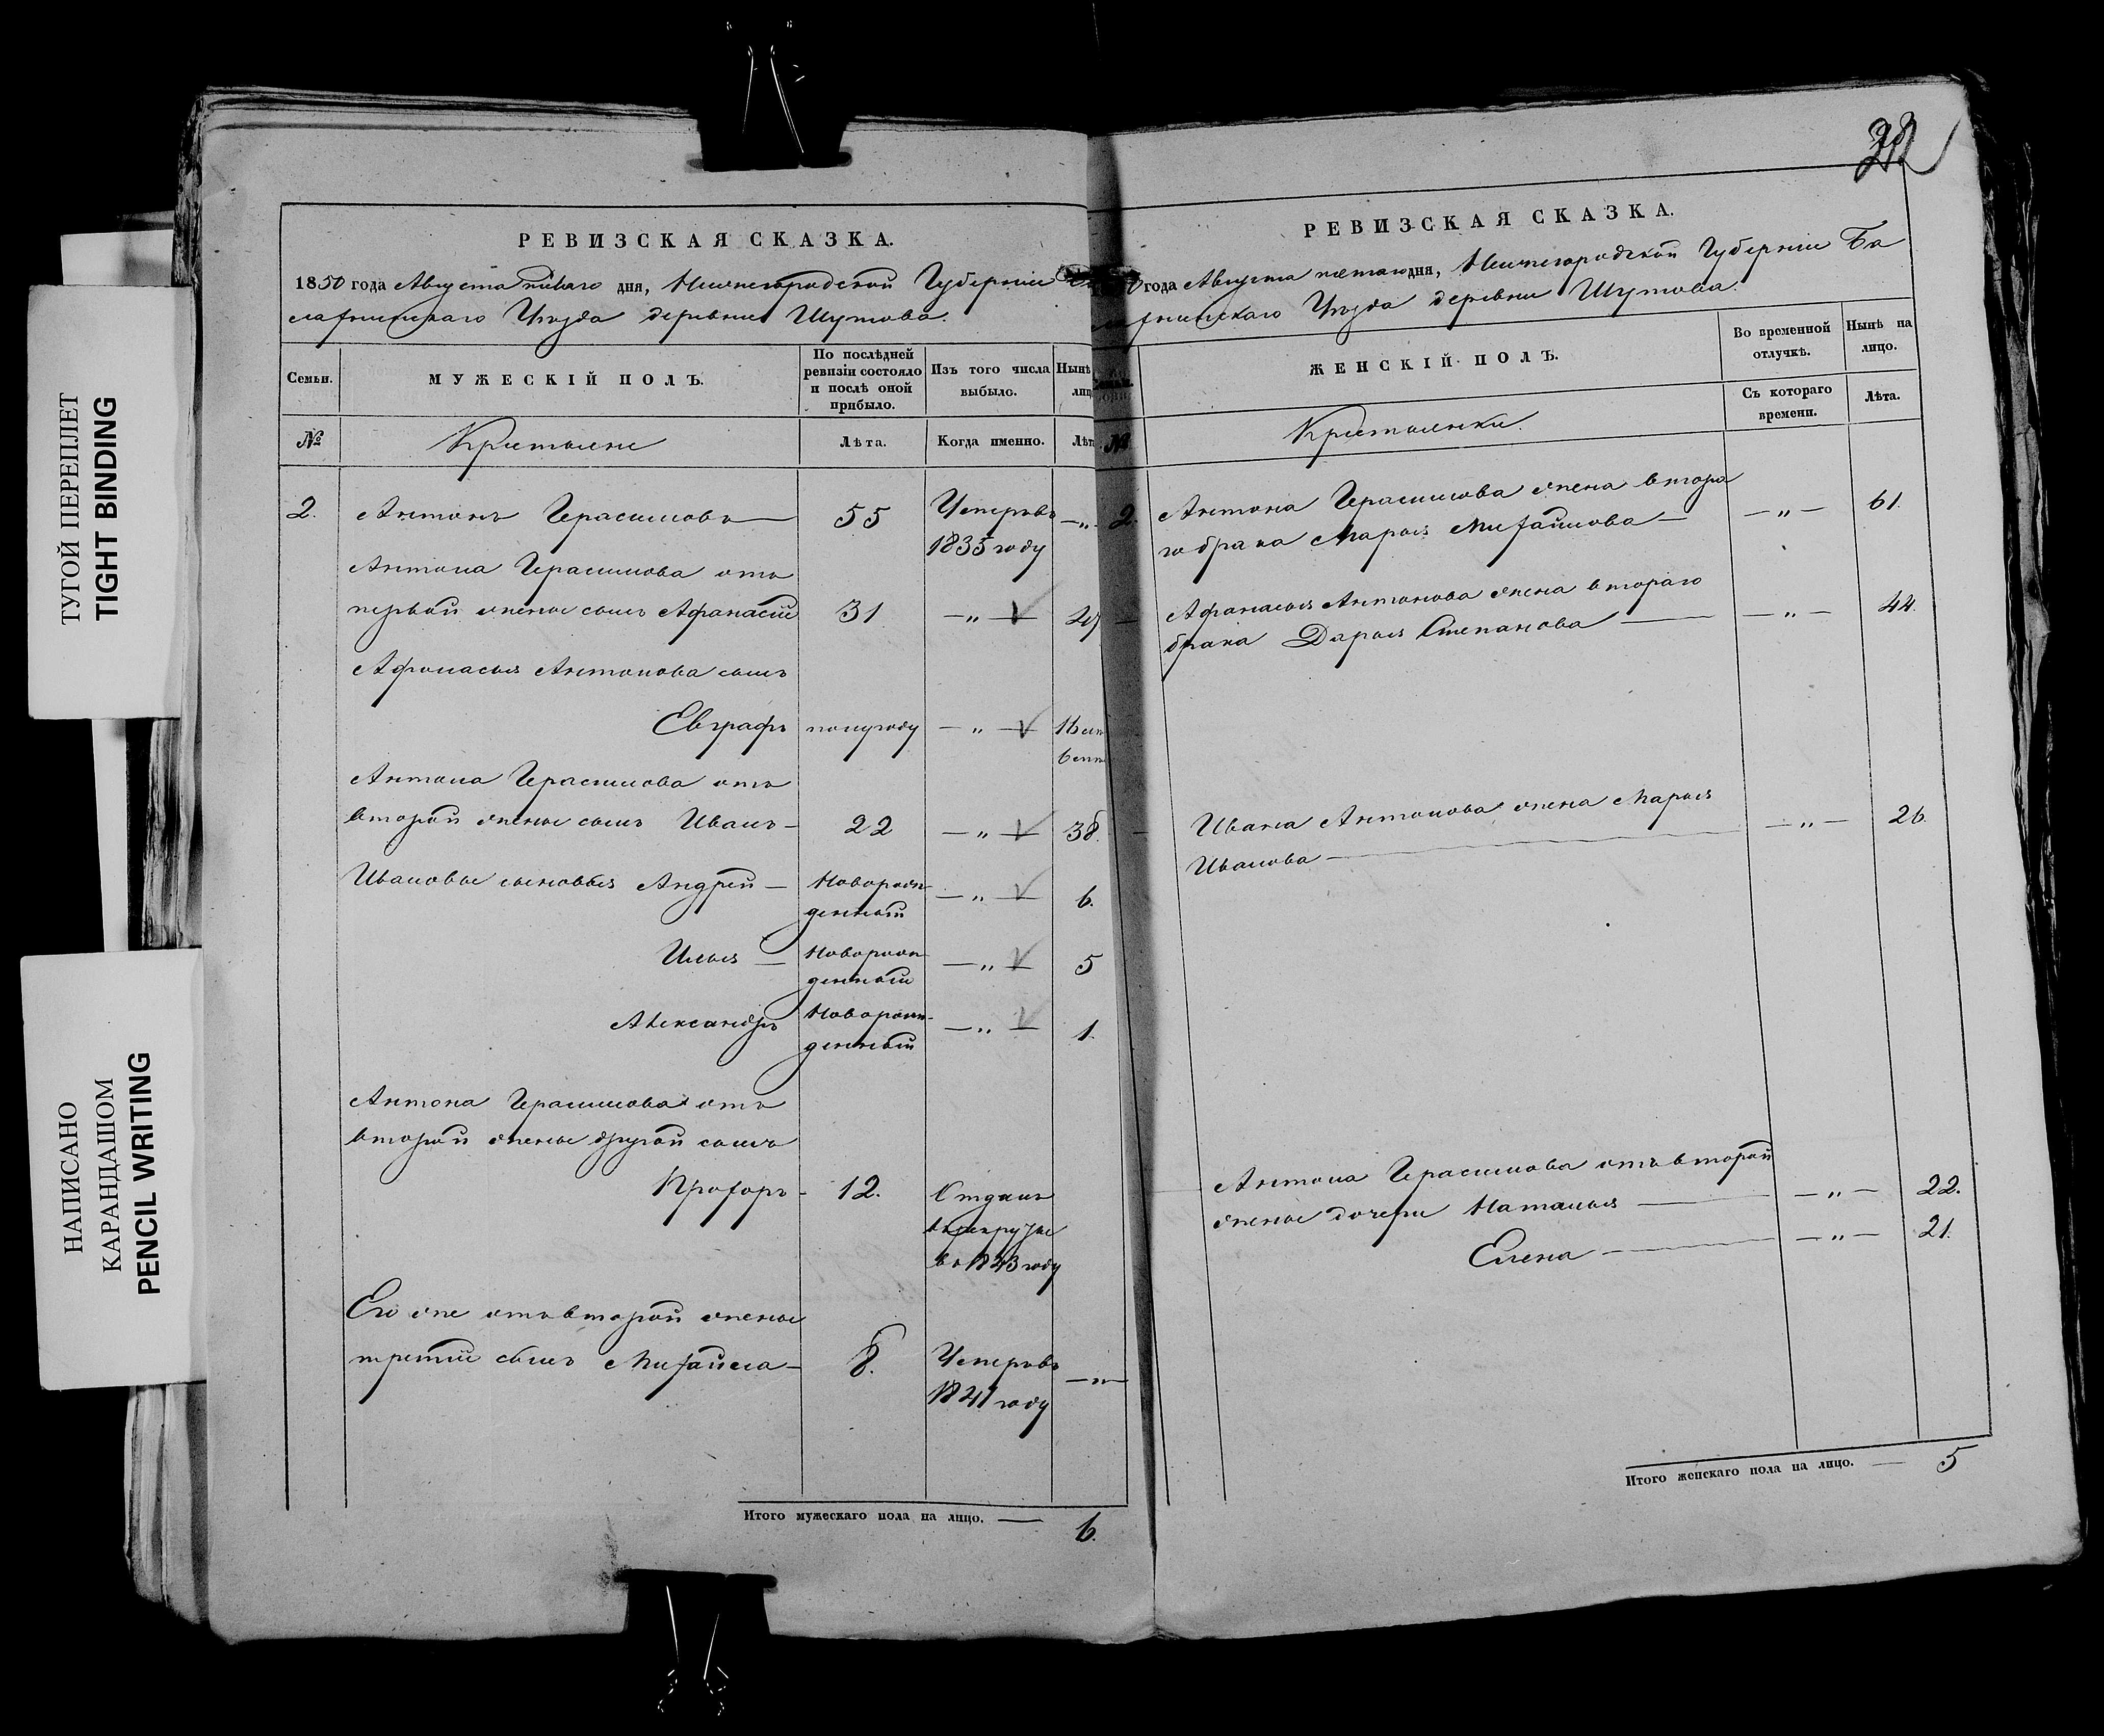 ТУГОЙ ПЕРЕПЛЕТ
TIGHT BINDING
НАПИСАНО
КАРАНДАШОМ
PENCIL WRITING
РЕВИЗСКАЯ СКАЗКА.
1850 года Августа дня, Нижегородской Губернии
лахнинскаго Уезда деревни Шутова.
Семьи.
МУЖЕСКІЙ ПОЛЪ.
По послѣдней
ревизіи состояло
и послѣ оной
прибыло.
Изъ того числа
выбыло.
Нынѣ
№
Крестьяне
Лѣта.
Когда именно.
2.
Антонъ Герасимовъ
55
Умеръ въ
1835 году
Антона Герасимова отъ
первой жены сынъ Афанасій
31
Афанасья Антонова сынъ
Евграфъ
полугоду
Антона Герасимова отъ
второй жены сынъ Иванъ
22
38.
Ивановы сыновья Андрей
Новорож-
денный
6.
Илья
Новорож-
денный
5
Александръ
Новорож-
денный
1.
Антона Герасимова отъ
второй жены другой сынъ
Прохоръ
12.
Отданъ
в рекруты
в 1843 году
Его же отъ второй жены
третій сынъ Михайла
8.
Умеръ въ
1841 году
Итого мужескаго пола на лицо.
6.
РЕВИЗСКАЯ СКАЗКА.
года Августа дня, Нижегородской Губерніи Ба
лахнинскаго Уезда деревни Шутова.
ЖЕНСКІЙ ПОЛЪ.
Во временной
отлучкѣ.
Нынѣ на
лицо.
№
Крестьянки.
Съ котораго
времени.
Лѣта.
2.
Антона Герасимова жена втора
го брака Марья Михайлова
61.
Афанасья Антонова жена втораго
брака Дарья Степанова
44.
Ивана Антонова жена Марья
Иванова
26.
Антона Герасимова отъ второй
жены дочери Наталья
22.
Елена
21.
Итого женскаго пола на лицо.
5